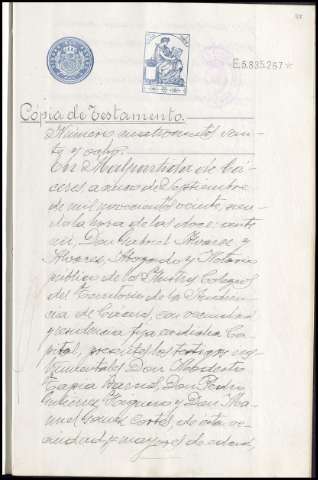 E.5.835.257*
Copia de Testamento.
Número cuatrocientos
y ocho.
En Malpartida de Cá-
ceres a de Septiembre
de mil novecientos veinte, sien-
do la hora de las doce; ante
mi, Don Gabriel Alvarez y
Alvarez, Abogado y Notario
público de los Ilustres Colegios
del Territorio de la Audien-
cia de Cáceres, con vecindad
y residencia fija en dicha Ca-
pital, presentes los testigos ins-
trumentales Don
Tapia Don Pedro
Gutiérrez y Don Ma-
nuel Cortés de esta ve-
cindad y mayores de edad,